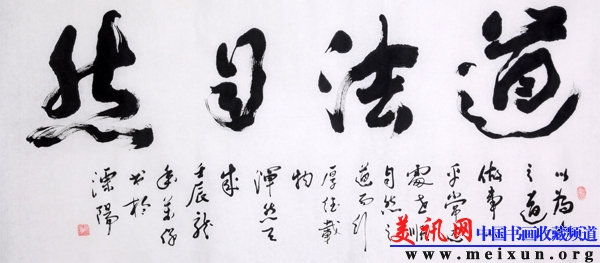 道法自然
以为
之道
做事
平常
自然之
道而行
厚德載
物
渾然天
成
壬辰龙
书於
溧陽
美讯网
中国书画收藏频道
www.meixun.org